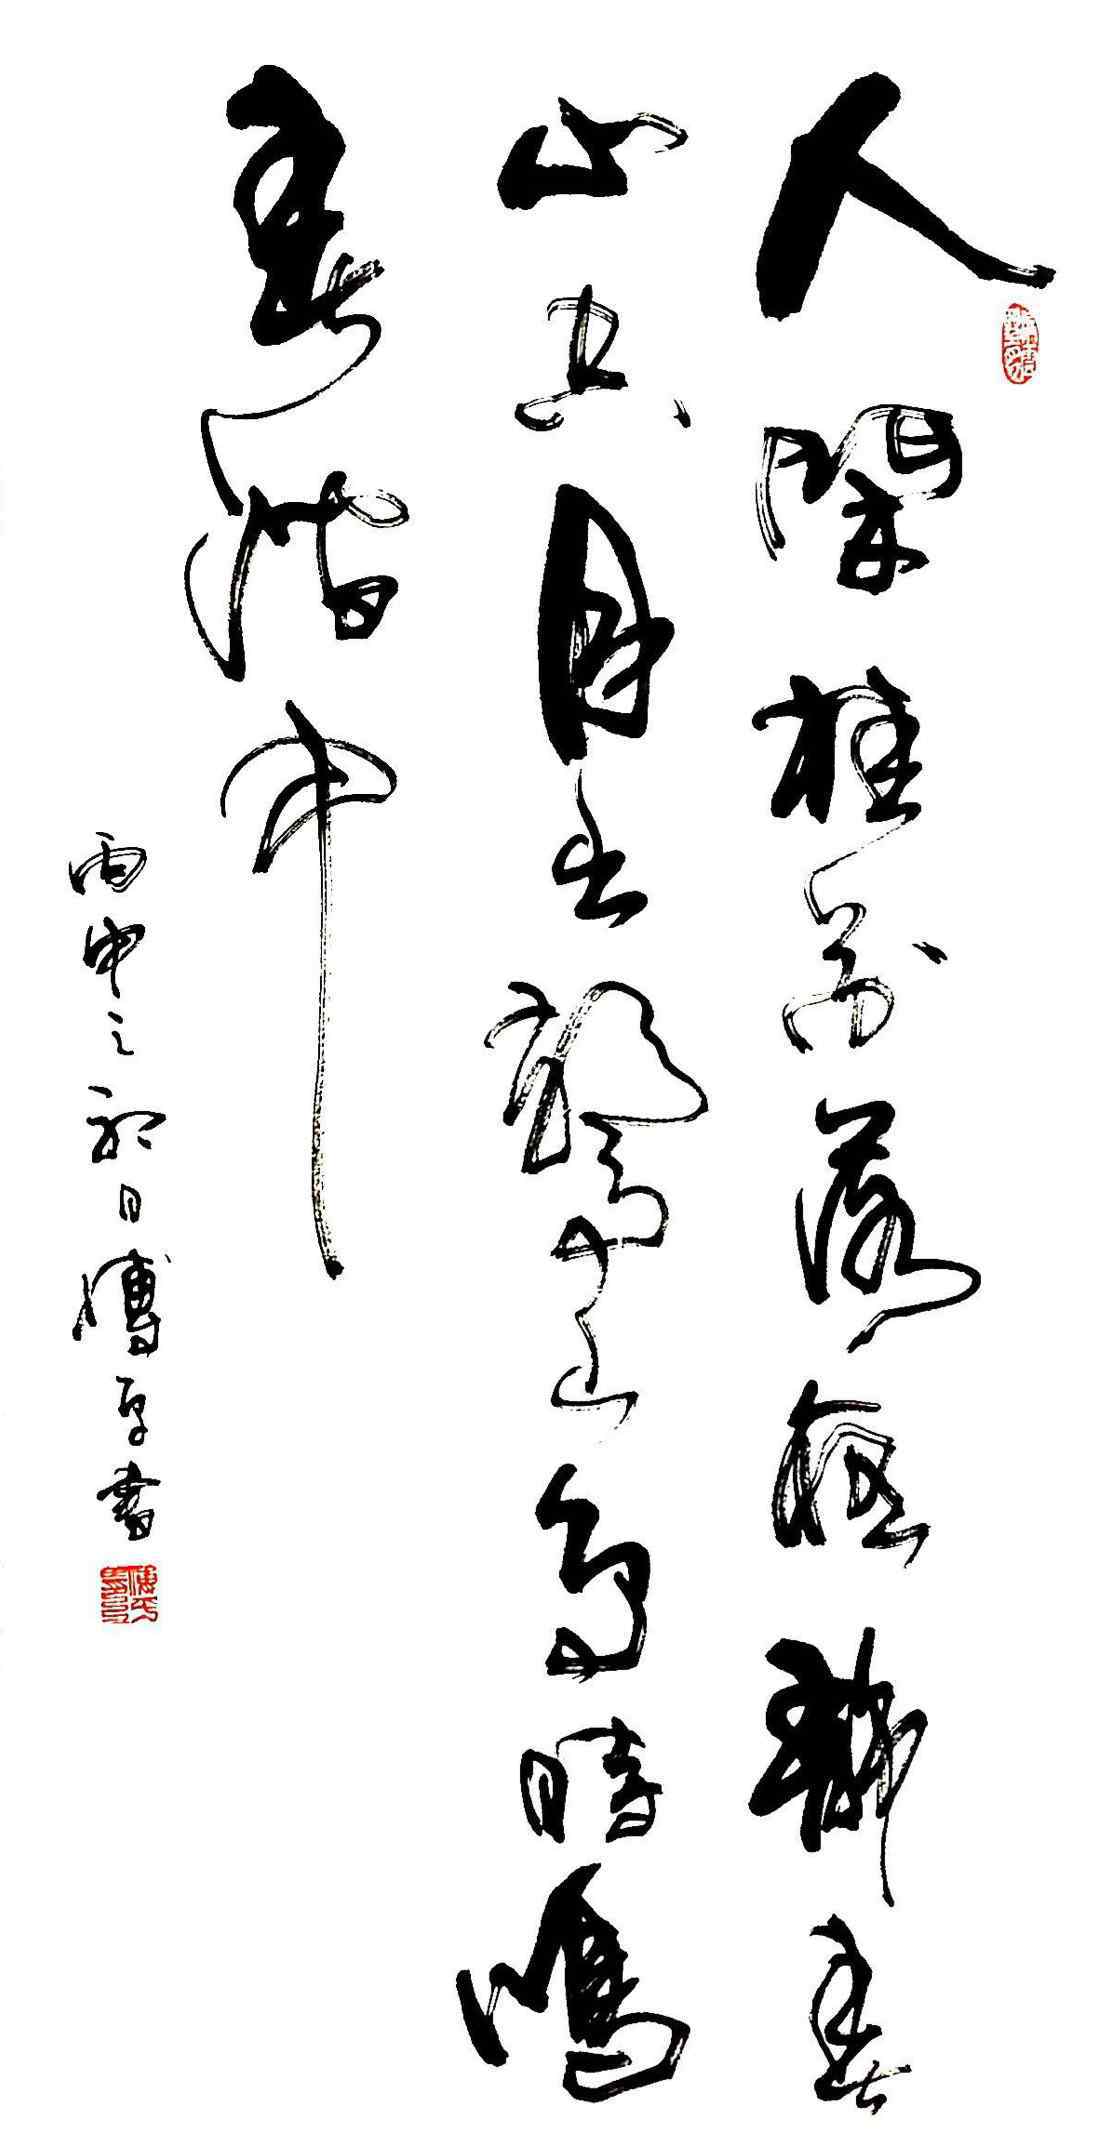 人閑桂花落夜靜春
山空月出驚山鳥時鳴
春澗中
丙申之日書